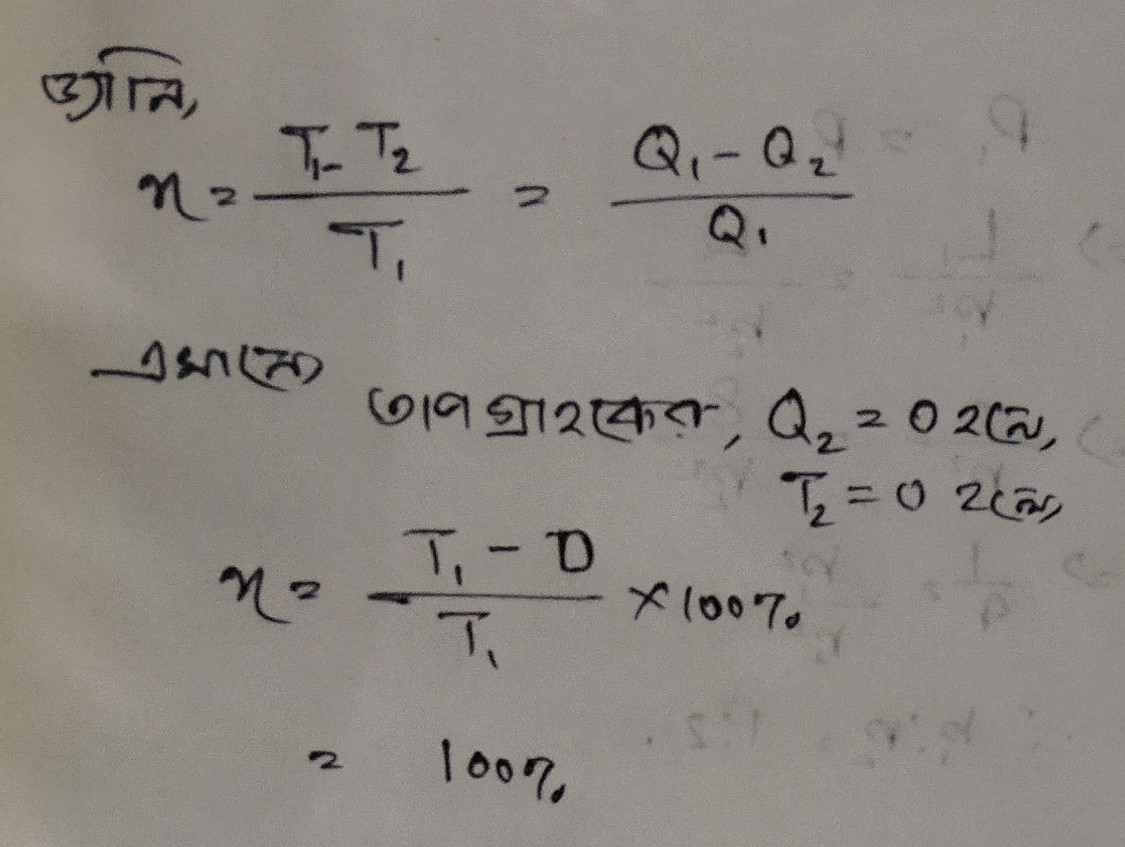 জানি,
η = \frac{T_1 - T_2}{T_1} = \frac{Q_1 - Q_2}{Q_1}
এখানে
তাপ গ্রাহকের, Q_2 = 0 হলে,
T_2 = 0 হলে,
η = \frac{T_1 - 0}{T_1} × 100%
= 100%